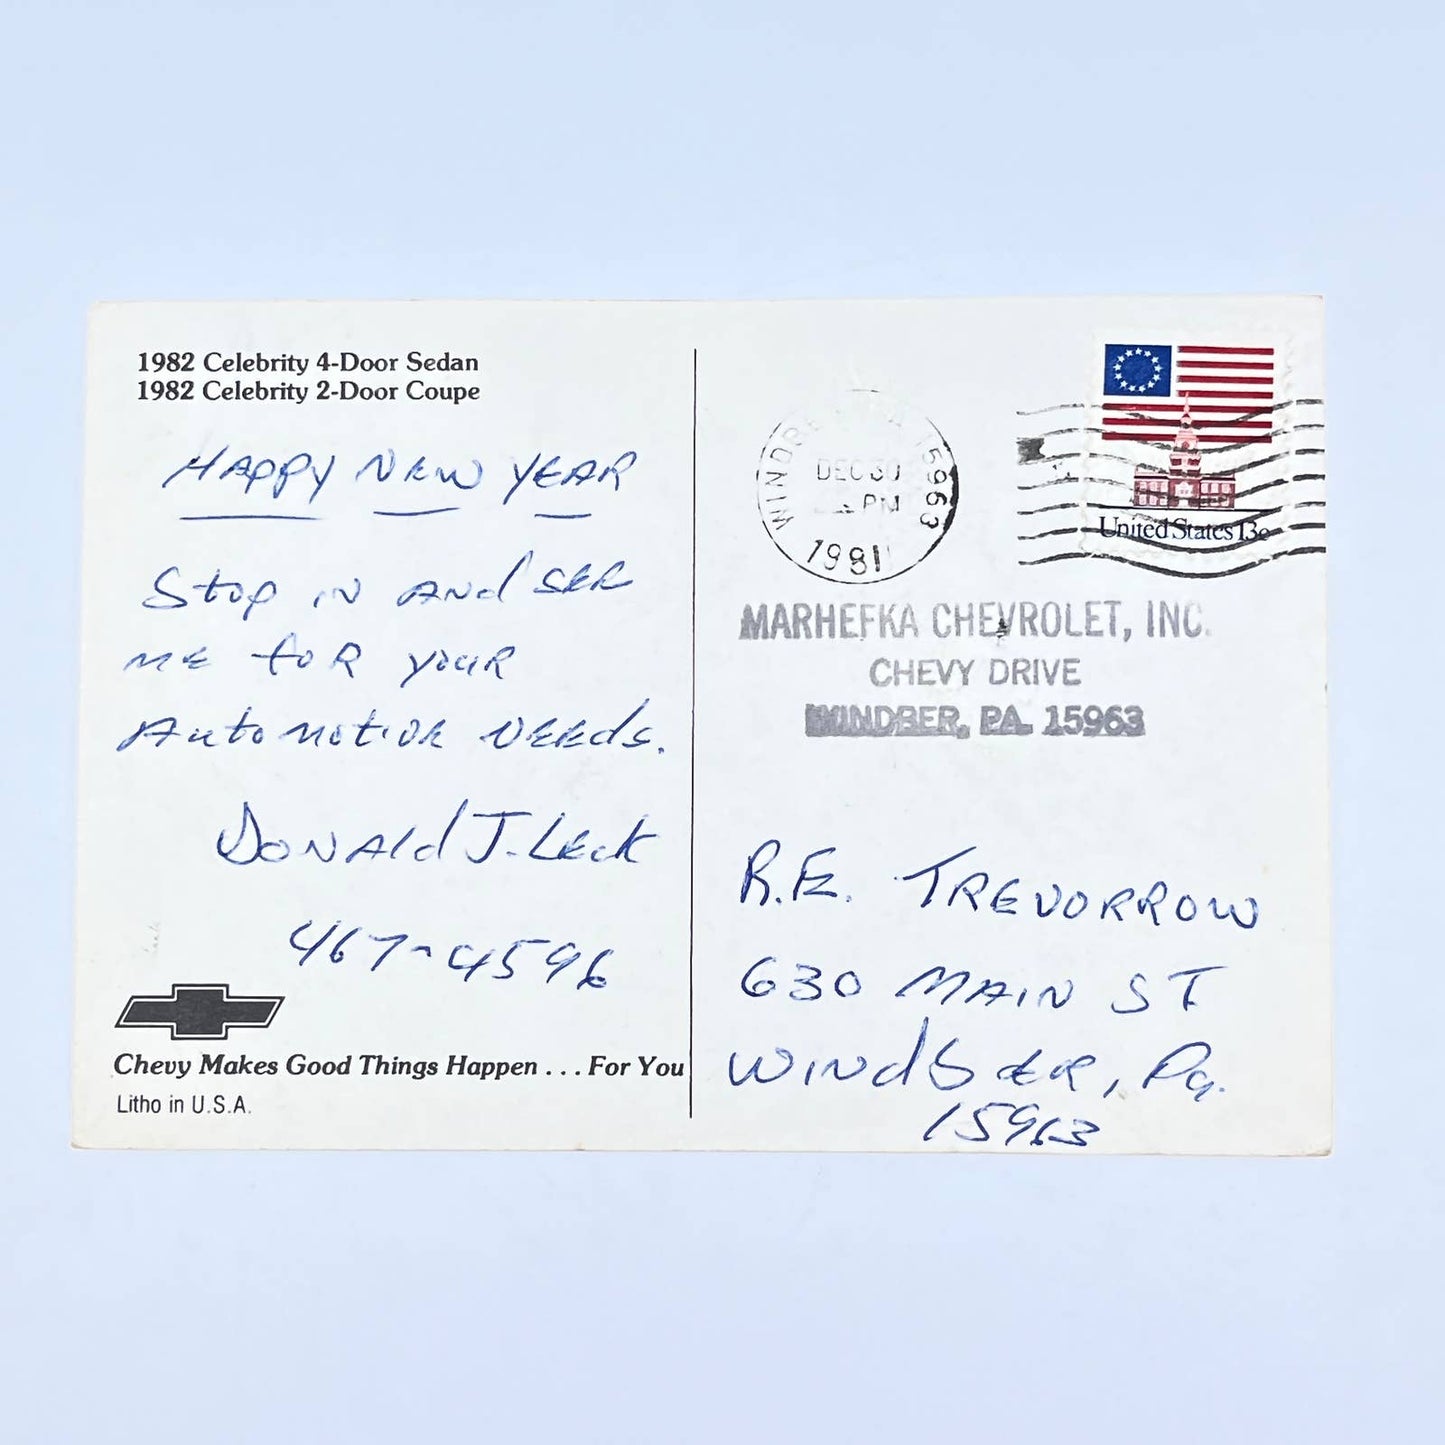 1982 Celebrity 4-Door Sedan
1982 Celebrity 2-Door Coupe
HAPPY NEW YEAR
Stop in And SEE
ME for your
Automotive NEEds.
DONAld J. Leck
467-4596
Chevy Makes Good Things Happen . . . For You
Litho in U.S.A.
15963
DEC 30
PM
1981
United States 13c
MARHEFKA CHEVROLET, INC.
CHEVY DRIVE
WINDBER, PA. 15963
R.E. TREVORROW
630 MAIN ST
WINdbER, Pa.
15963